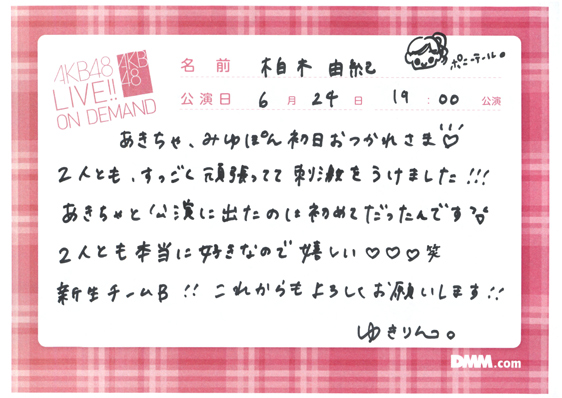 AKB48
LIVE!!
ON DEMAND
AKB
48
名前 柏木由紀 ポニーテール。
公演日 6月24日 19:00公演
あきちゃ、みゆぽん初日おつかれさま♡
2人とも、すっごく頑張ってて刺激をうけました!!!
あきちゃと公演に出たのは初めてだったんです
2人とも本当に好きなので嬉しい♡♡♡笑
新生チームB!! これからもよろしくお願いします!!
ゆきりん。
DMM.com